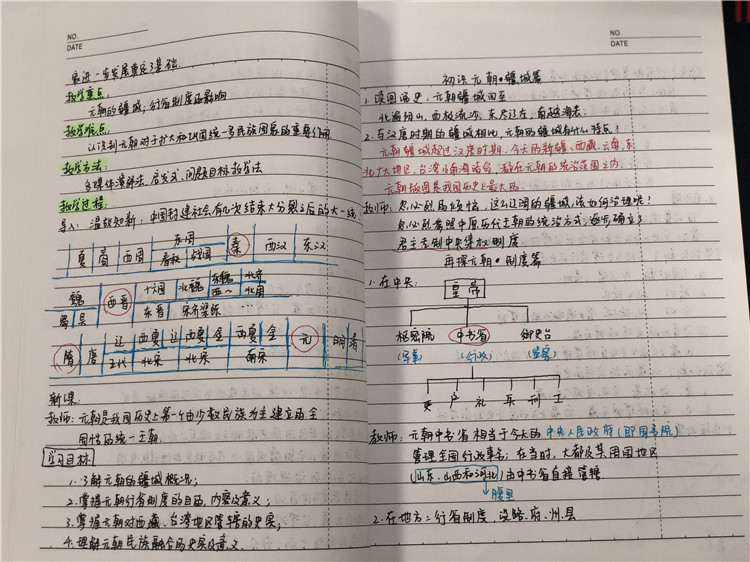 NO.
DATE
展进一步发展奠定了基础.
教学重点:
元朝的疆域;行省制度的影响
教学难点:
认识到元朝对于扩大和巩固统一多民族国家的重要作用
教学方法:
多媒体演示法、启发式、问题目标教学法
教学过程:
导入:温故知新:中国封建社会有几次结束大分裂之后的大一统
夏 商 西周 东周 春秋 战国 秦 西汉 东汉
魏 蜀 吴 西晋 十六国 东晋 北魏 东魏 西〃 北齐 北周 宋齐梁陈 …
隋 唐 辽 五代 西夏 北宋 辽 西夏 金 北宋 西夏 金 南宋 元 明 清
新课:
教师:元朝是我国历史上第一个由少数民族为主建立的全
国性的统一王朝.
学习目标
1.了解元朝的疆域概况;
2.掌握元朝行省制度的目的,内容及意义;
3.掌握元朝对西藏、台湾地区管辖的史实;
4.理解元朝民族融合的史实及意义.
NO.
DATE
初读元朝·疆域篇
1.读图闻史,元朝疆域四至
北逾阴山,西极流沙,东尽辽左,南越海表.
2.与汉唐时期的疆域相比,元朝的疆域有什么特点?
元朝疆域超过汉唐时期.今天的新疆、西藏、云南、东
北广大地区,台湾
都在元朝的统治范围之内.
元朝版图是我国历史上最大的.
教师:忽必烈居大
这么辽阔的疆域,该如何治理呢?
忽必烈参照中原历代王朝的统治方式,逐步确立了
君主专制中央集权制度
再探元朝·制度篇
1.在中央:
皇帝
枢密院 中书省 御史台
(军事) (行政) (监察)
吏 户 礼 兵 刑 工
教师:元朝中书省相当于今天的中央人民政府(即国务院)
管理全国行政事务;在当时,大都及其周围地区
(山东、山西和河北)由中书省直接管辖
→腹里
2.在地方:行省制度 设路.府.州.县